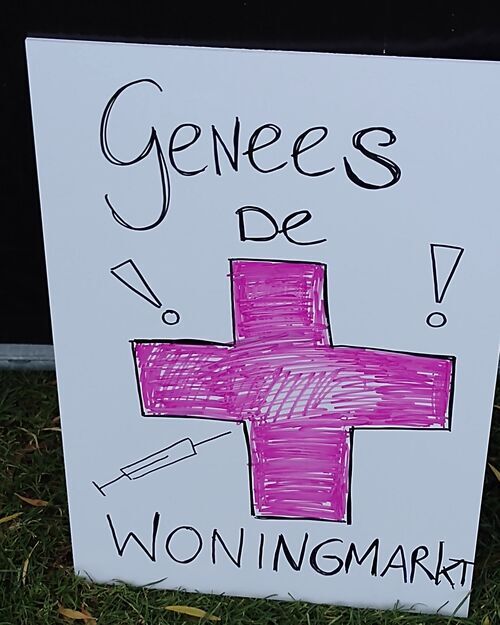 Genees
De
! !
WONINGMARKT